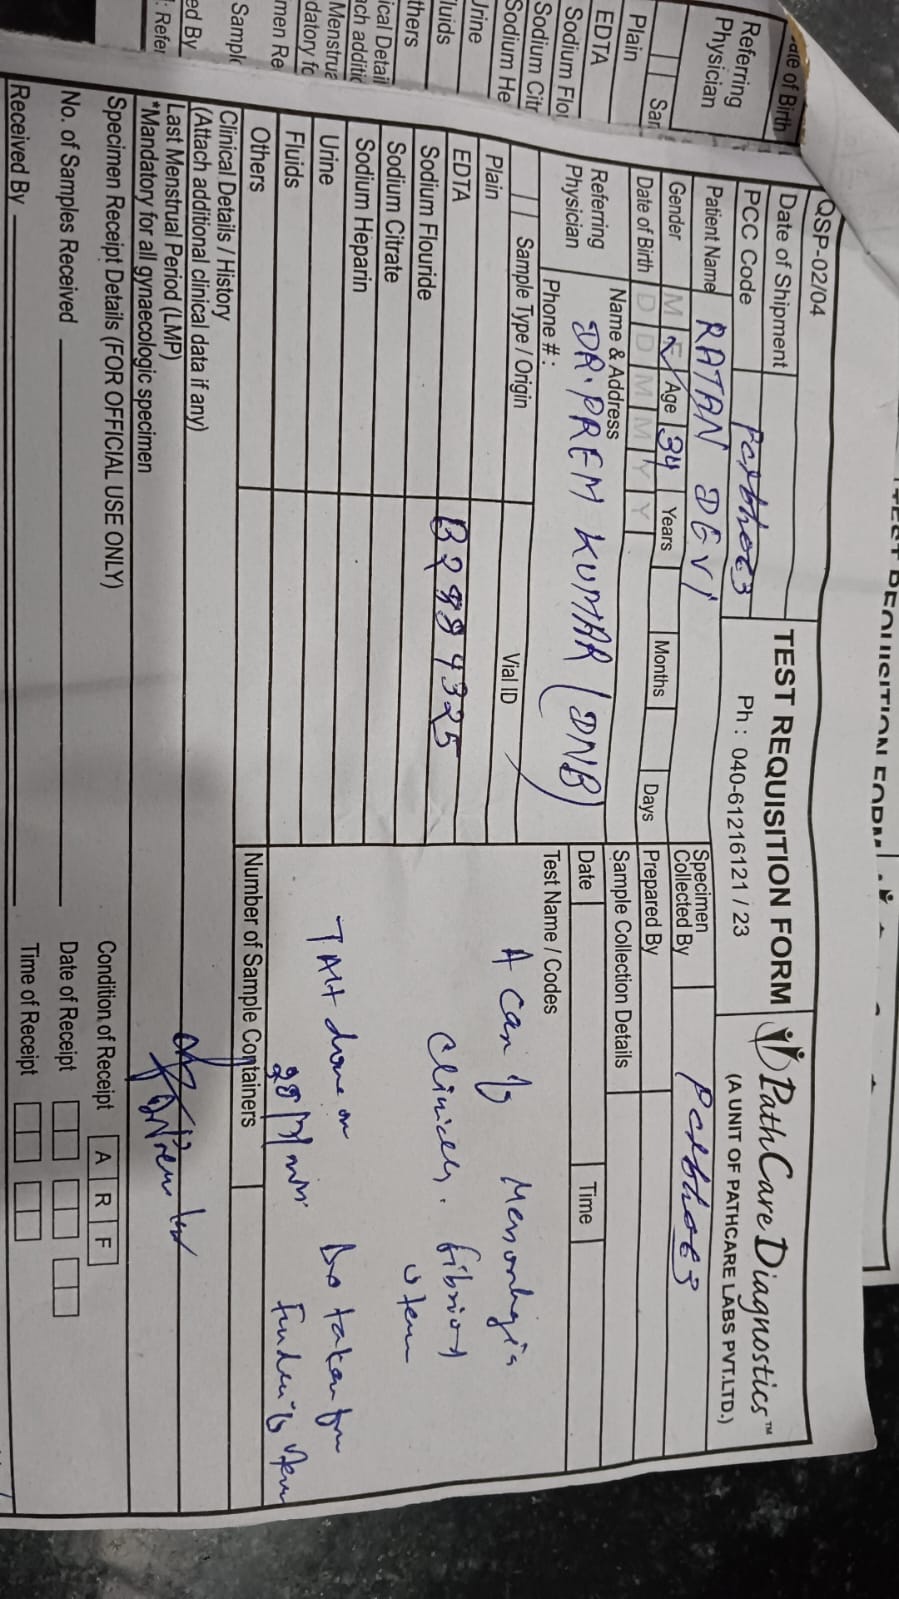 TEST REQUISITION FORM
ate of Birth
Referring
Physician
San
Plain
EDTA
Sodium Flo
Sodium Citr
Sodium He
Urine
luids
thers
ical Detail
ach additic
Menstrua
datory fo
men Re
Sample
ed By
: Refer
QSP-02/04
TEST REQUISITION FORM
PathCare Diagnostics™
Date of Shipment
Ph : 040-61216121 / 23
(A UNIT OF PATHCARE LABS PVT.LTD.)
PCC Code
Patient Name RATAN DEVI
Specimen
Collected By
Gender M F Age 34 Years Months Days
Prepared By
Date of Birth D D M M Y Y
Sample Collection Details
Referring
Physician
Name & Address
DR. PREM KUMAR (DNB)
Phone # :
Date Time
Sample Type / Origin Vial ID
Test Name / Codes
Plain
EDTA B2994325
Sodium Flouride
Sodium Citrate
Sodium Heparin
Urine
Fluids
Others
A case of
TAH done on
Clinical Details / History
(Attach additional clinical data if any)
Number of Sample Containers
Last Menstrual Period (LMP)
*Mandatory for all gynaecologic specimen
Specimen Receipt Details (FOR OFFICIAL USE ONLY)
Condition of Receipt A R F
No. of Samples Received
Date of Receipt
Received By
Time of Receipt